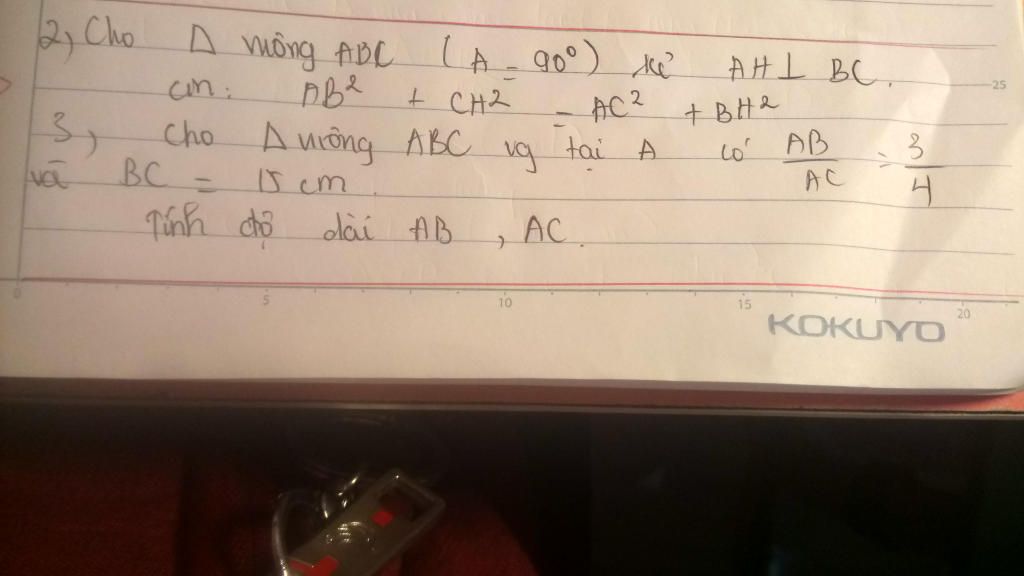 2, Cho Δ vuông ABC ( A = 90⁰ ) kẻ AH ⊥ BC.
cm: AB² + CH² = AC² + BH²
3, Cho Δ vuông ABC vg tại A có AB/AC = 3/4
và BC = 15 cm.
Tính độ dài AB , AC.
25
0 5 10 15 20
KOKUYO